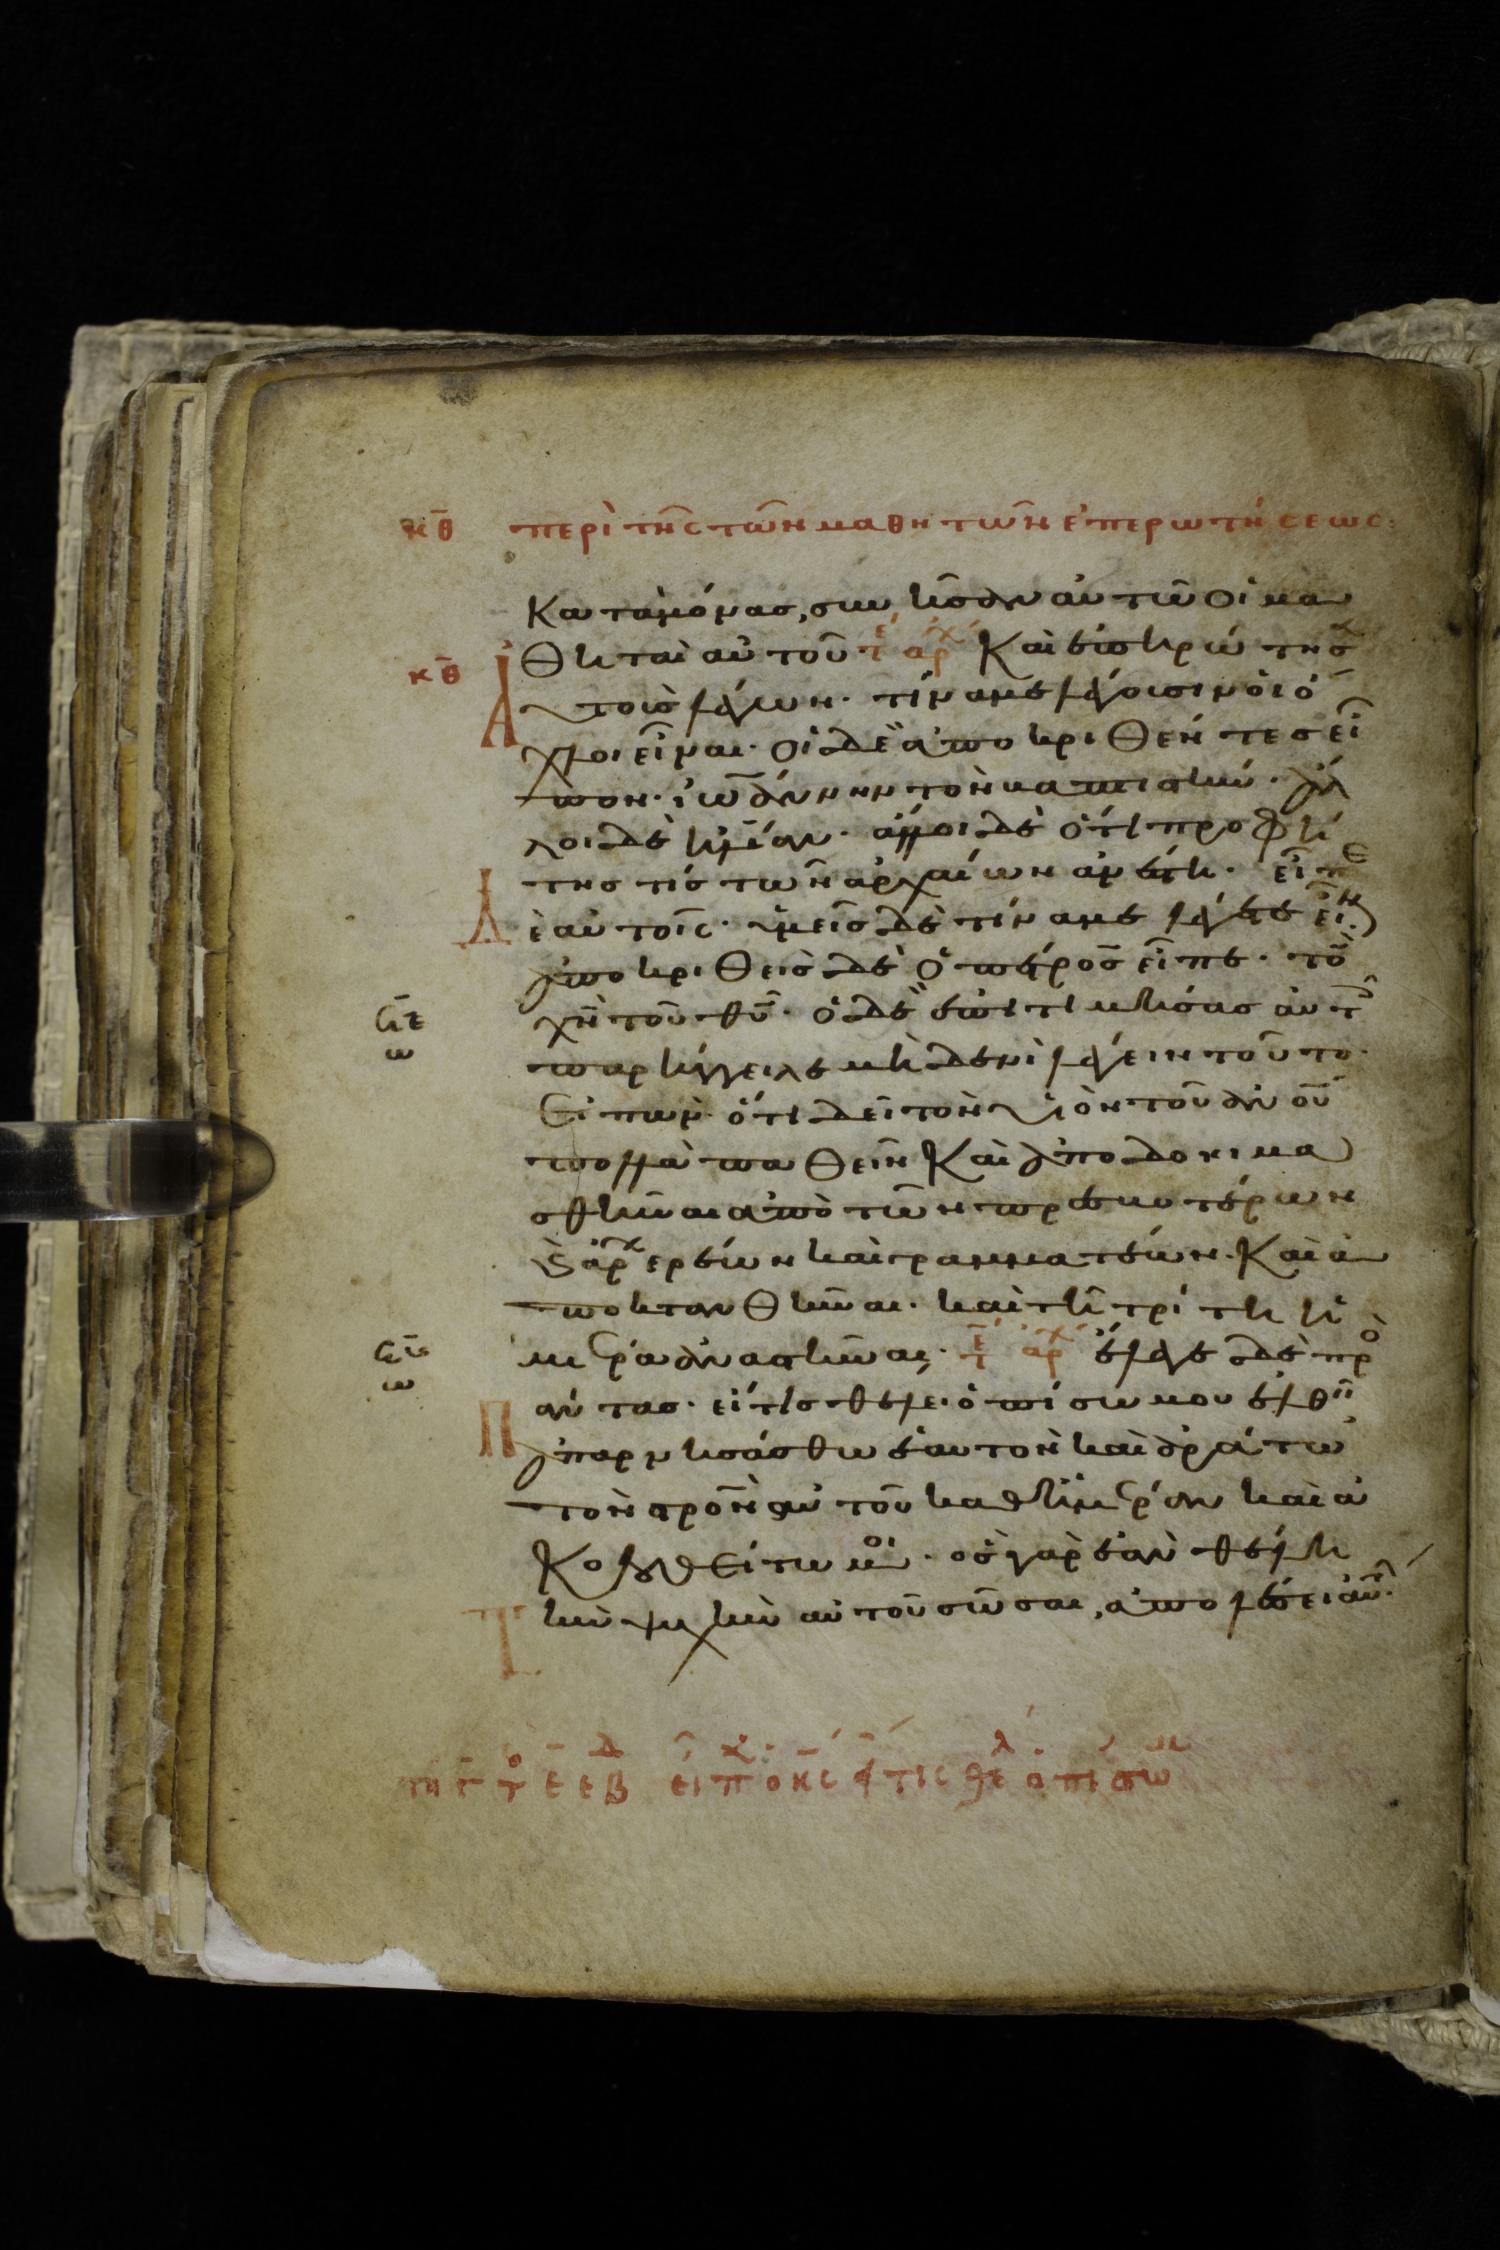 κθ περὶ τῆς τῶν μαθητῶν ἐπερωτήσεως:
Καταμόνας, συνῆσαν αὐτῶ οἱ μα
κθ θηταὶ αὐτοῦ· τ αρχ Καὶ ἐπηρώτησεν
αὐτοὺς λέγων· τίνα με λέγουσιν οἱ ὄ
χλοι εἶναι· οἱ δὲ ἀποκριθέντες εἶ
πον· ἰωάννην τὸν βαπτιστήν· ἄλ
λοι δὲ ἠλίαν· ἄλλοι δὲ ὅτι προφή
της τίς τῶν ἀρχαίων ἀνέστη· εἶπε
δὲ αὐτοῖς· ὑμεῖς δὲ τίνα με λέγετε εἶν
ἀποκριθεὶς δὲ ὁ πέτρος εἶπε· τὸν
χν τοῦ θυ· ὁ δὲ ἐπιτιμήσας αὐτ
παρήγγειλε μηδενὶ λέγειν τοῦτο·
Εἰπὼν ὅτι δεῖ τὸν υἱὸν τοῦ ανου
πολλὰ παθεῖν Καὶ ἀποδοκιμα
σθῆναι ἀπὸ τῶν πρεσβυτέρων
καὶ ἀρχιερέων καὶ γραμματέων· Καὶ ἀ
ποκτανθῆναι· καὶ τῆ τρίτη ἡ
μέρα ἀναστῆναι· τ αρχ ἔλεγε δὲ πρὸ
πάντας· εἴ τις θέλει ὀπίσω μου ἐλθ
ἀπαρνησάσθω ἑαυτὸν καὶ ἀράτω
τὸν στρον αὐτοῦ καθημέραν καὶ ἀ
Κολουθείτω μοι· ὃς γὰρ ἐὰν θέλη
Τὴν ψυχὴν αὐτοῦ σῶσαι, ἀπολέσει αὐτ·